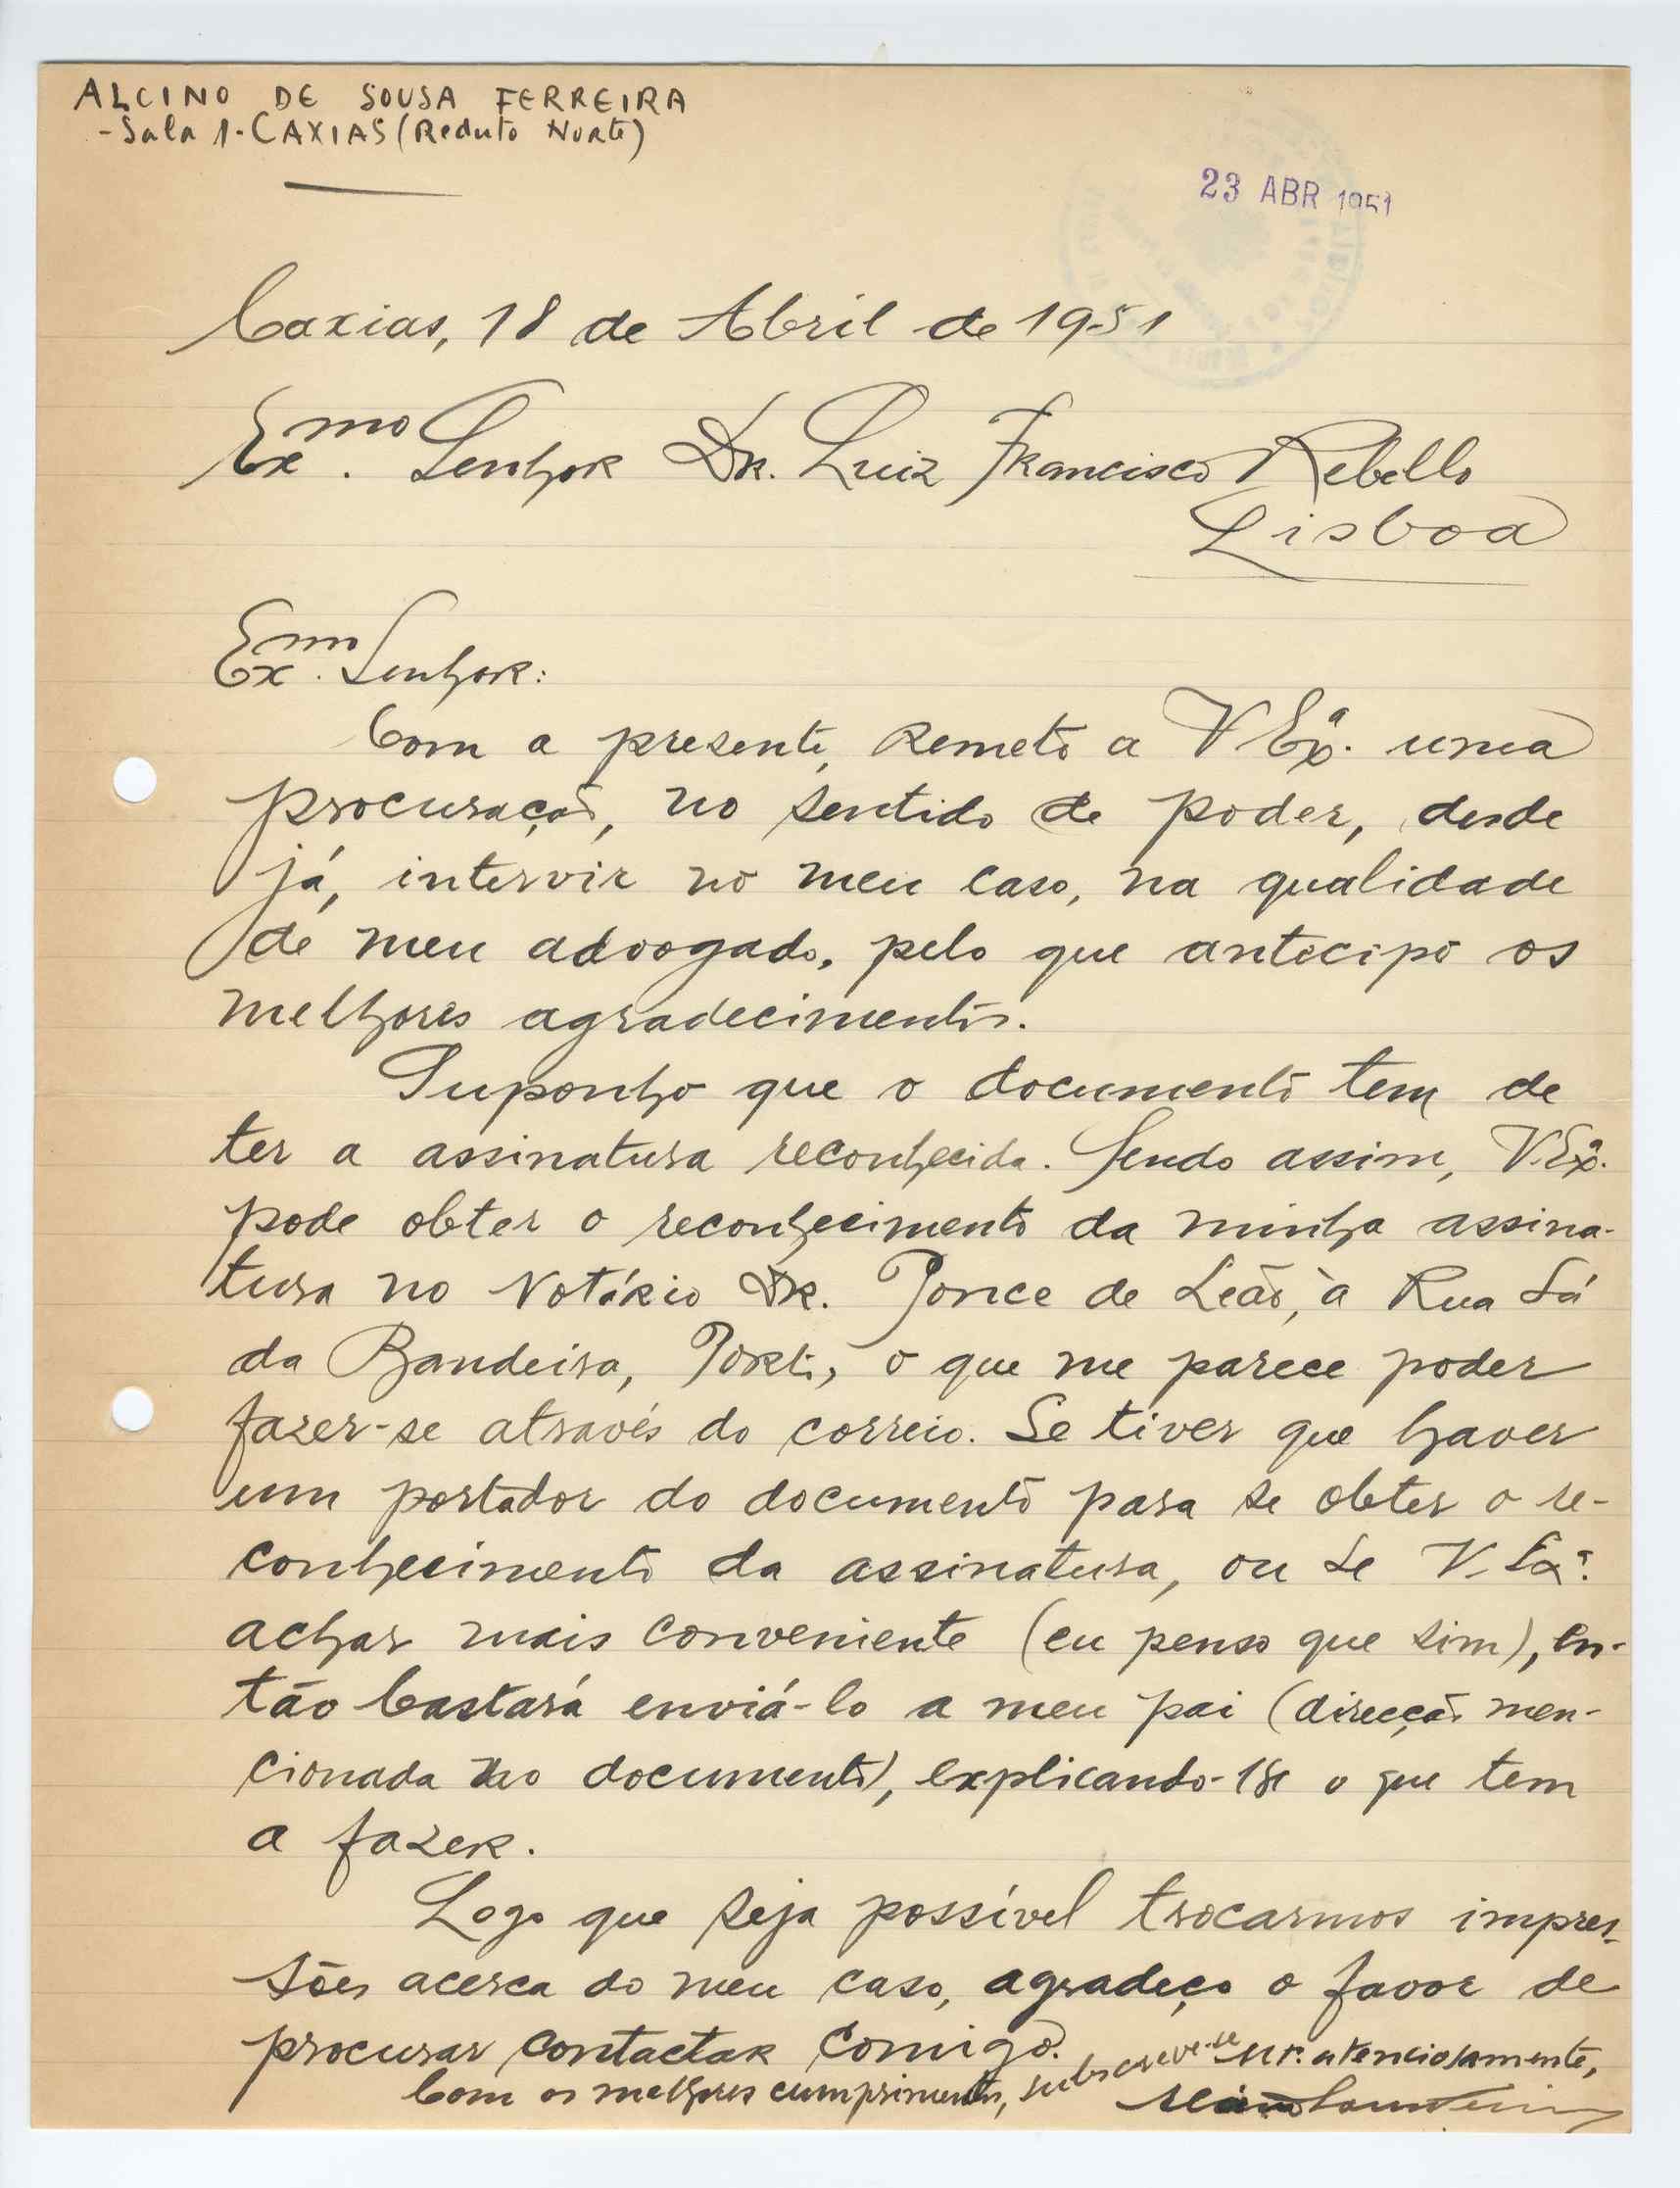 ALCINO DE SOUSA FERREIRA
- Sala 1 - CAXIAS (Reduto Norte)
23 ABR 1951
Caxias, 18 de Abril de 1951
Exmo. Senhor Dr. Luiz Francisco Rebello
Lisboa
Exmo. Senhor:
Com a presente, remeto a V Exª. uma
procuração, no sentido de poder, desde
já, intervir no meu caso, na qualidade
de meu advogado, pelo que antecipo os
melhores agradecimentos.
Suponho que o documento tem de
ter a assinatura reconhecida. Sendo assim, V. Exª.
pode obter o reconhecimento da minha assina-
tura no Notário Dr. Ponce de Leão, à Rua Sá
da Bandeira, Porto, o que me parece poder
fazer-se através do correio. Se tiver que haver
um portador do documento para se obter o re-
conhecimento da assinatura, ou se V. Exª.
achar mais conveniente (eu penso que sim), en-
tão bastará enviá-lo a meu pai (direcção men-
cionada no documento), explicando-lhe o que tem
a fazer.
Logo que seja possível trocarmos impres-
sões acerca do meu caso, agradeço o favor de
procurar contactar comigo.
Com os melhores cumprimentos, subscreve-se mt.º atenciosamente,